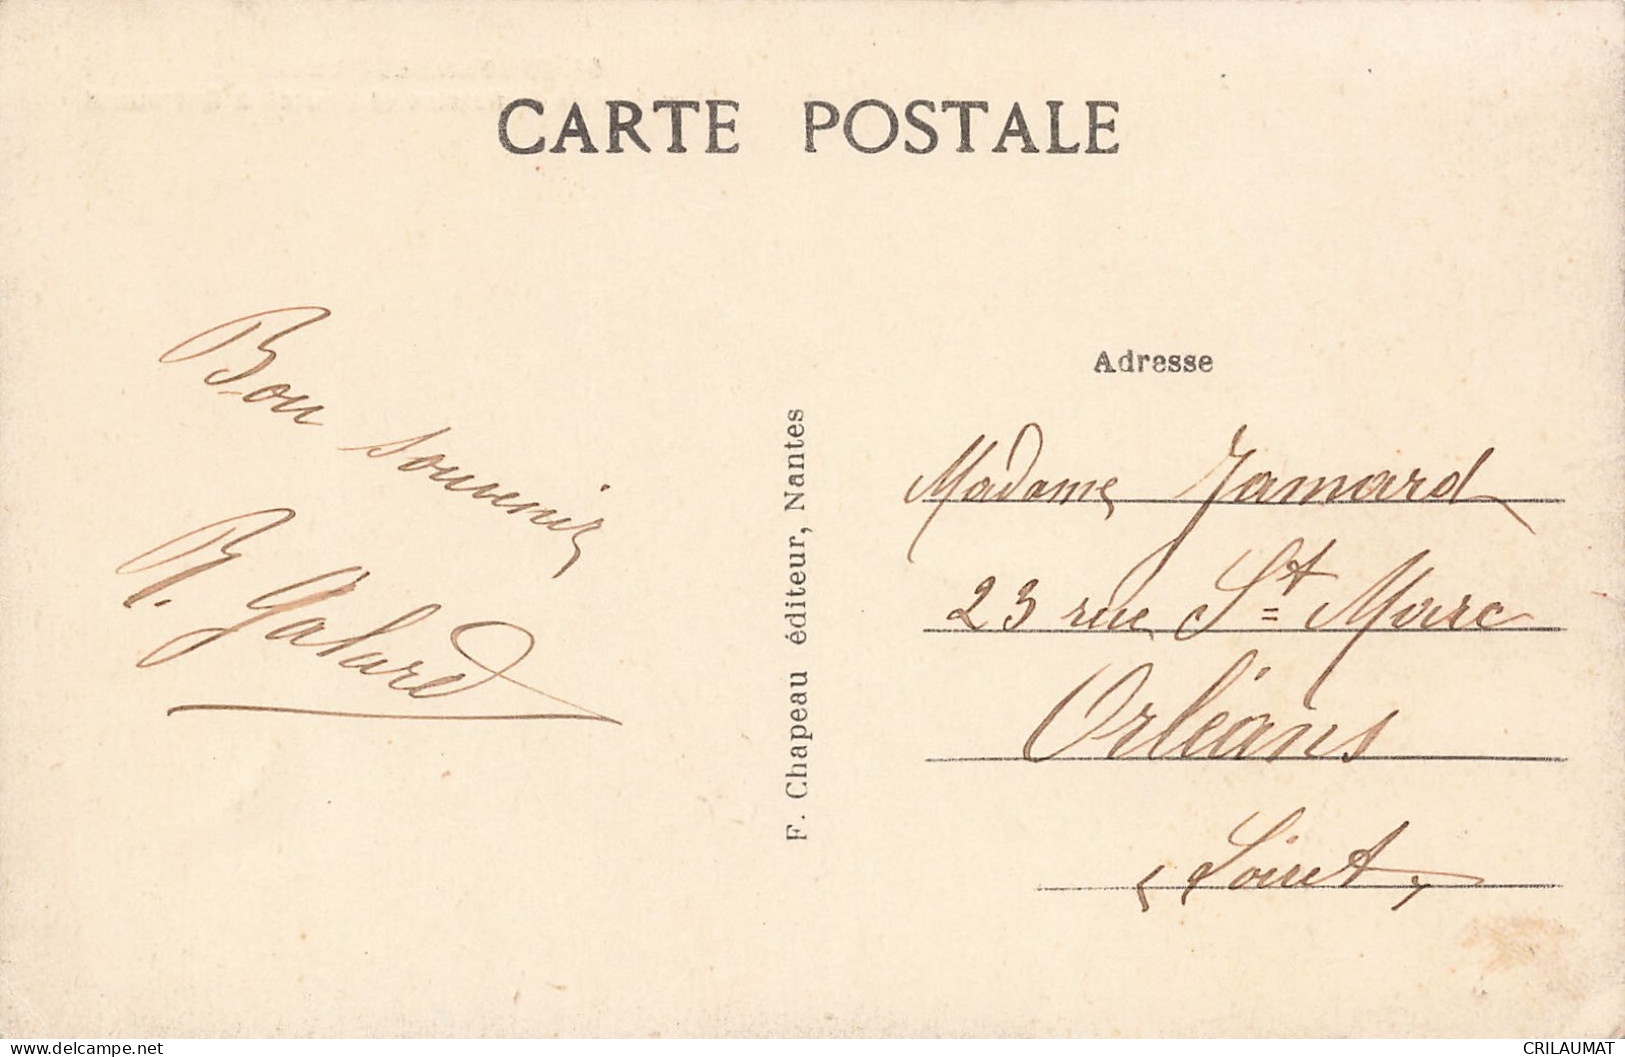 CARTE POSTALE
Bon souvenir
Galard
F. Chapeau éditeur, Nantes
Adresse
Madame Jamard
23 rue St Marc
Orléans
(Loiret)
delcampe.net
CRILAUMAT